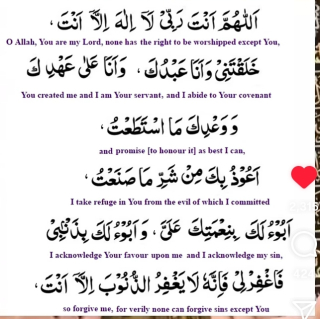 اَللّٰهُمَّ اَنْتَ رَبِّیْ لَآ اِلٰهَ اِلَّآ اَنْتَ،
O Allah, You are my Lord, none has the right to be worshipped except You,
خَلَقْتَنِیْ وَاَنَا عَبْدُكَ، وَاَنَا عَلٰی عَهْدِكَ
You created me and I am Your servant, and I abide to Your covenant
وَوَعْدِكَ مَا اسْتَطَعْتُ،
and promise [to honour it] as best I can,
اَعُوْذُ بِكَ مِنْ شَرِّ مَا صَنَعْتُ،
I take refuge in You from the evil of which I committed
اَبُوْءُ لَكَ بِنِعْمَتِكَ عَلَیَّ، وَاَبُوْءُ لَكَ بِذَنْۢبِیْ
I acknowledge Your favour upon me and I acknowledge my sin,
فَاغْفِرْلِیْ فَاِنَّهٗ لَا یَغْفِرُ الذُّنُوْبَ اِلَّآ اَنْتَ،
so forgive me, for verily none can forgive sins except You